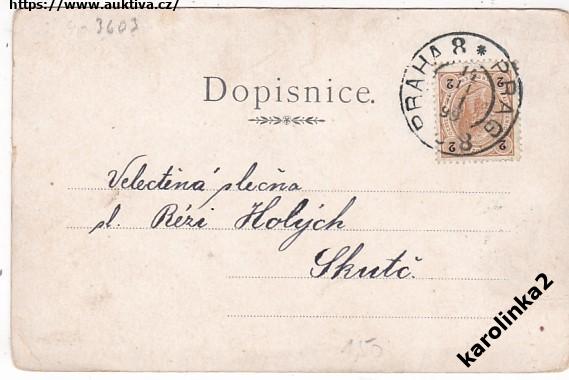 https://www.auktiva.cz/
3603
Dopisnice.
PRAHA 8 * PRAG 8
2 2 2 2
Velectěná slečna
sl. Rézi Holých
Skutč.
karolinka2